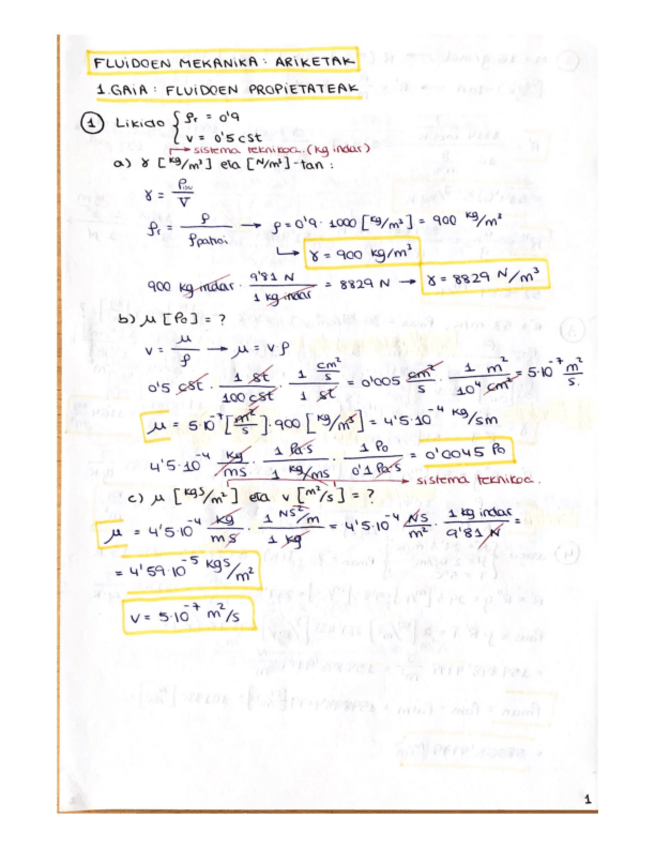 FLUIDOEN MEKANIKA: ARIKETAK
1.GAIA: FLUIDOEN PROPIETATEAK
① Likido { ρr = 0'9
ν = 0'5 cSt
→ sistema teknikoa. (kg indar)
a) γ [kg/m³] eta [N/m³]-tan:
γ = / V
ρr = ρ / ρpatroi → ρ = 0'9 · 1000 [kg/m³] = 900 kg/m³
↳ γ = 900 kg/m³
900 kg indar · 9'81 N / 1 kg indar = 8829 N → γ = 8829 N/m³
b) μ [Po] = ?
ν = μ / ρ → μ = ν ρ
0'5 cSt · 1 St / 100 cSt · 1 cm²/s / 1 St = 0'005 cm²/s · 1 m² / 10⁴ cm² = 5·10⁻⁷ m²/s
μ = 5·10⁻⁷ [m²/s] · 900 [kg/m³] = 4'5·10⁻⁴ kg/sm
4'5·10⁻⁴ kg/ms · 1 Pa·s / 1 kg/ms · 1 Po / 0'1 Pa·s = 0'0045 Po
→ sistema teknikoa.
c) μ [kgs/m²] eta ν [m²/s] = ?
μ = 4'5·10⁻⁴ kg/ms · 1 Ns²/m / 1 kg = 4'5·10⁻⁴ Ns/m² · 1 kg indar / 9'81 N =
= 4'59·10⁻⁵ kgs/m²
ν = 5·10⁻⁷ m²/s
1